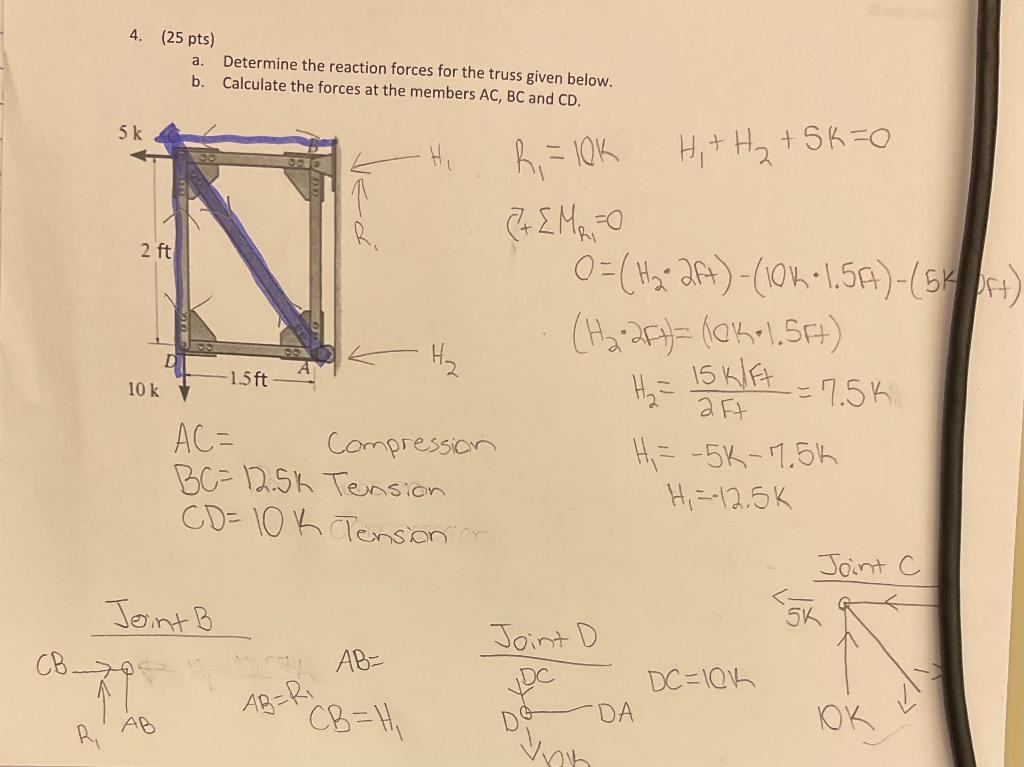 4. (25 pts)
a. Determine the reaction forces for the truss given below.
b. Calculate the forces at the members AC, BC and CD.
5 k
B
H₁
R₁
2 ft
D
1.5 ft
A
10 k
H₂
R₁ = 10K H₁ + H₂ + 5K = 0
↻+ ΣM_R₁ = 0
0 = (H₂ · 2ft) - (10K · 1.5Ft) - (5K
(H₂ · 2Ft) = (10K · 1.5Ft)
H₂ = 15 K/Ft / 2 Ft = 7.5K
H₁ = -5K - 7.5K
H₁ = -12.5K
AC = Compression
BC = 12.5K Tension
CD = 10 K Tension
Joint B
CB
R₁
AB
AB=
AB=R₁
CB = H₁
Joint D
DC
D
DA
10K
DC=10K
Joint C
5K
10K